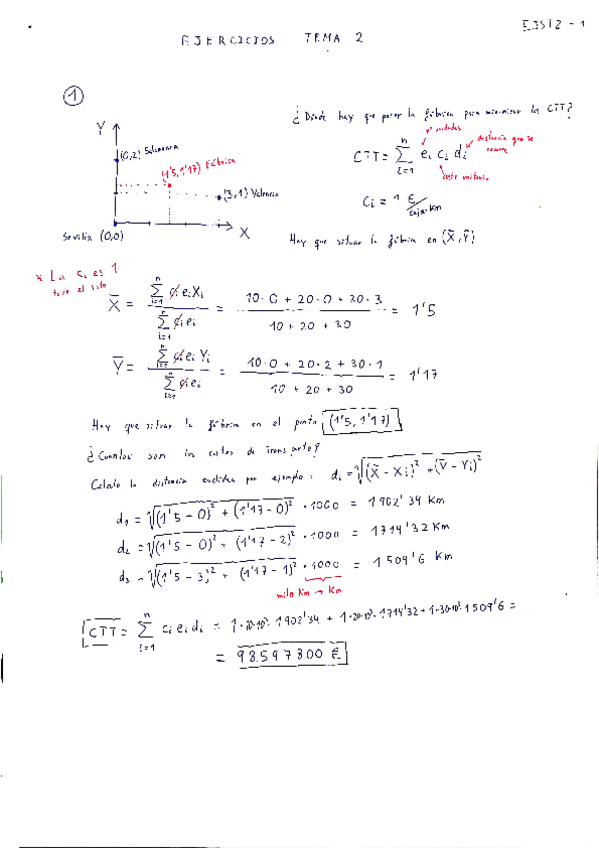 EJST2 - 1
EJERCICIOS TEMA 2
①
¿Dónde hay que poner la fábrica para minimizar los CTT?
Y
(0,2) Salamanca
(1'5,1'17) Fábrica
(3,1) Valencia
Sevilla (0,0)
X
unidades
distancia que se recorre
CTT = Σ_{i=1}^{n} e_i c_i d_i
coste unitario
C_i = 1 €/caja·km
Hay que situar la fábrica en (X̄, Ȳ)
* La c_i es 1
todo el rato
X̄ = Σ_{i=1}^{n} c_i e_i X_i / Σ_{i=1}^{n} c_i e_i = (10·0 + 20·0 + 30·3) / (10 + 20 + 30) = 1'5
Ȳ = Σ_{i=1}^{n} c_i e_i Y_i / Σ_{i=1}^{n} c_i e_i = (10·0 + 20·2 + 30·1) / (10 + 20 + 30) = 1'17
Hay que situar la fábrica en el punto (1'5, 1'17)
¿Cuantos son los costes de transporte?
Calculo la distancia euclídea por ejemplo: d_i = √((X̄ - X_i)² + (Ȳ - Y_i)²)
d₁ = √((1'5 - 0)² + (1'17 - 0)²) · 1000 = 1902'34 Km
d₂ = √((1'5 - 0)² + (1'17 - 2)² · 1000 = 1714'32 Km
d₃ = √((1'5 - 3)² + (1'17 - 1)² · 1000 = 1509'6 Km
miles Km → Km
CTT = Σ_{i=1}^{n} c_i e_i d_i = 1·10·10³·1902'34 + 1·20·10³·1714'32 + 1·30·10³·1509'6 =
= 98.597800 €